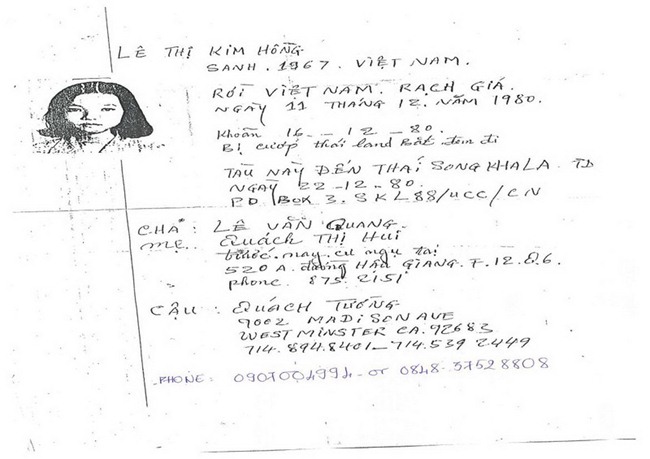 LÊ THỊ KIM HỒNG
SANH. 1967. VIỆT NAM.
RỜI VIỆT NAM. RẠCH GIÁ.
NGÀY 11 THÁNG 12. NĂM 1980.
Khoản 16 - 12 - 80.
Bị cướp thái land Bắt đem đi
TÀU NÀY ĐẾN THÁI SONGKHALA. TD
NGÀY 22-12-80.
P.O BOX 3. SKL 88/UCC/CN
CHA : LÊ VĂN QUANG
MẸ. QUÁCH THỊ HUI
trước. nay. cư ngụ tại
520 A. đường HẬU GIANG. F. 12. Q6.
phone. 875 2151
CẬU : QUÁCH TƯỜNG
9002 MADISON AVE
WESTMINSTER CA. 92683
714. 894.8401 - 714.539 2449
PHONE: 0907004994 - or 0848-37528808